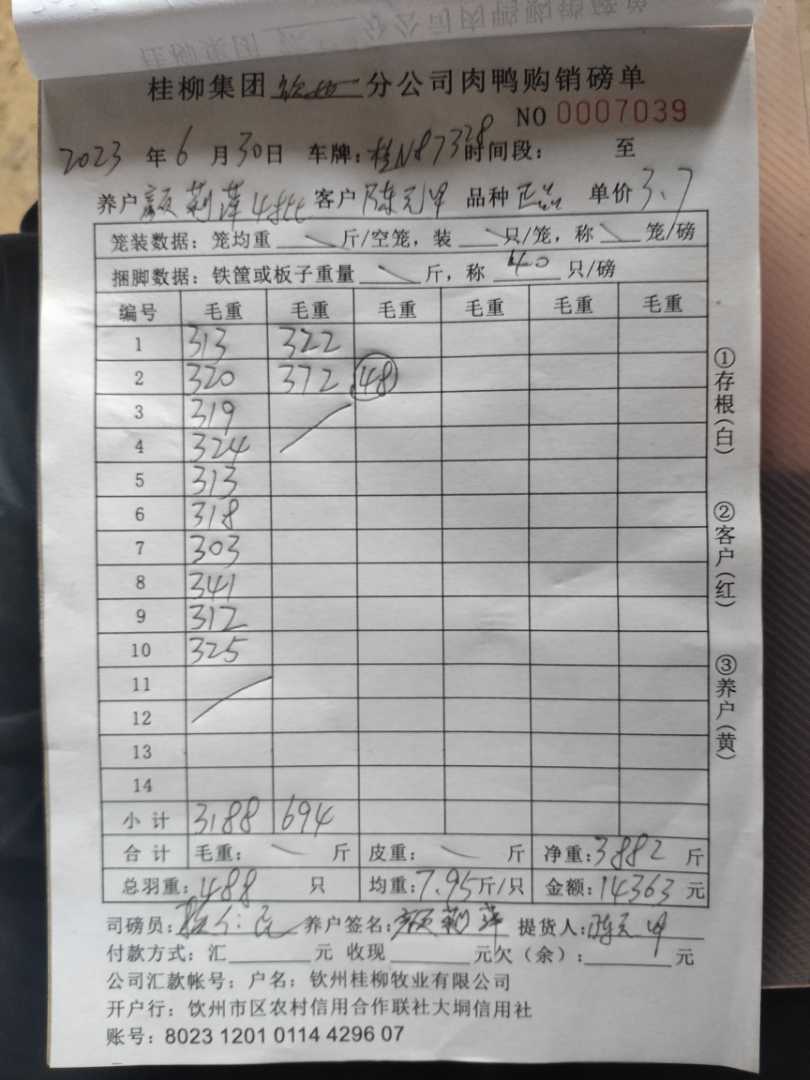 桂柳集团 钦州 分公司肉鸭购销磅单
NO 0007039
2023 年 6 月 30 日 车牌: 桂N87328 时间段: 至
养户 莉萍 客户 陈元甲 品种 正品 单价 3.7
笼装数据: 笼均重 斤/空笼, 装 只/笼, 称 笼/磅
捆脚数据: 铁筐或板子重量 斤, 称 40 只/磅
编号 毛重 毛重 毛重 毛重 毛重 毛重
1 313 322
2 320 372 48
3 319
4 324
5 313
6 318
7 303
8 341
9 312
10 325
11
12
13
14
小计 3188 694
合计 毛重: 斤 皮重: 斤 净重: 3882 斤
总羽重: 488 只 均重: 7.95 斤/只 金额: 14363 元
司磅员: 养户签名: 莉萍 提货人: 陈元甲
付款方式: 汇 元 收现 元欠(余): 元
公司汇款帐号: 户名: 钦州桂柳牧业有限公司
开户行: 饮州市区农村信用合作联社大垌信用社
账号: 8023 1201 0114 4296 07
①存根(白)
②客户(红)
③养户(黄)